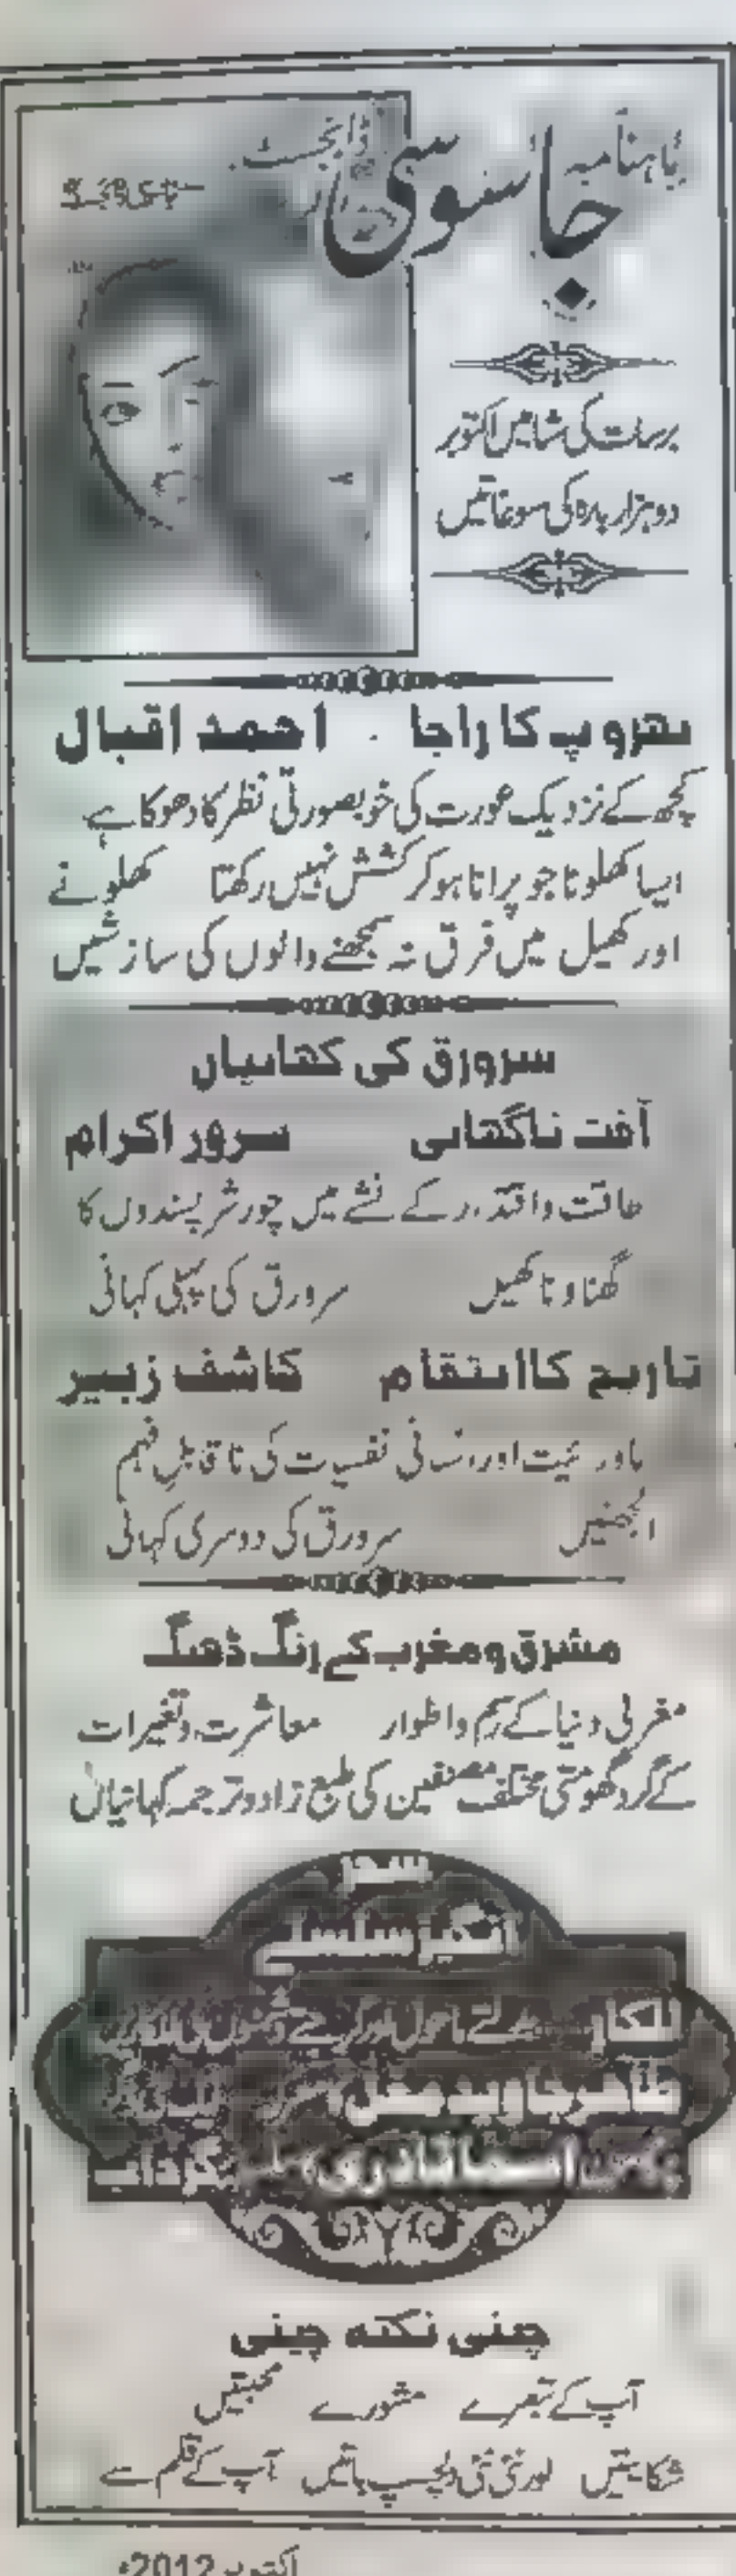 ماہنامہ
جاسوسی
ڈائجسٹ
برسات کی شامیں اکتوبر
دو ہزار بارہ کی سوغاتیں
بھروپ کا راجا . احمد اقبال
کچھ کے نزدیک عورت کی خوبصورتی نظر کا دھوکا ہے
ایسا کھلونا جو پرانا ہو کر کشش نہیں رکھتا کھلونے
اور کھیل میں فرق نہ سمجھنے والوں کی سازشیں
سرورق کی کھانیاں
آفت ناگھانی سرور اکرام
طاقت و اقتدار کے نشے میں چور شر پسندوں کا
گھناونا کھیل سرورق کی پہلی کہانی
تاریخ کا انتقام کاشف زبیر
ماورائیت اور انسانی نفسیات کی ناقابلِ فہم
الجھنیں سرورق کی دوسری کہانی
مشرق و مغرب کے رنگ ڈھنگ
مغربی دنیا کے رسم و اطوار معاشرت و تغیرات
کے گرد گھومتی مختلف مصنفین کی طبع زاد و ترجمہ کہانیاں
سحر
انگیز سلسلے
للکار
طاہر جاوید مغل
اسما قادری گرداب
چینی نکتہ چینی
آپ کے تبصرے مشورے محبتیں
شکایتیں اور نئی نئی دلچسپ باتیں آپ کے قلم سے
اکتوبر 2012ء